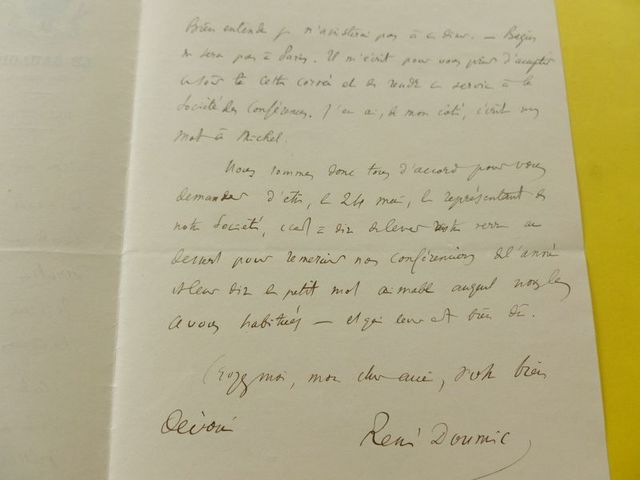 Bien entendu je n'assisterai pas à ce diner. — Bazin
ne sera pas à Paris. Il m'écrit pour vous prier d'accepter
à son tour cette corvée et de rendre ce service à la
Société des Conférences. J'en ai, de mon côté, écrit un
mot à Michel.
Nous sommes donc tous d'accord pour vous
demander d'être, le 24 mai, le représentant de
notre Société, c'est à dire de lever votre verre au
dessert pour remercier nos conférenciers de l'année
et leur dire ce petit mot aimable auquel nous les
avons habitués — et qui leur est bien dû.
Croyez moi, mon cher ami, votre bien
dévoué
René Doumic